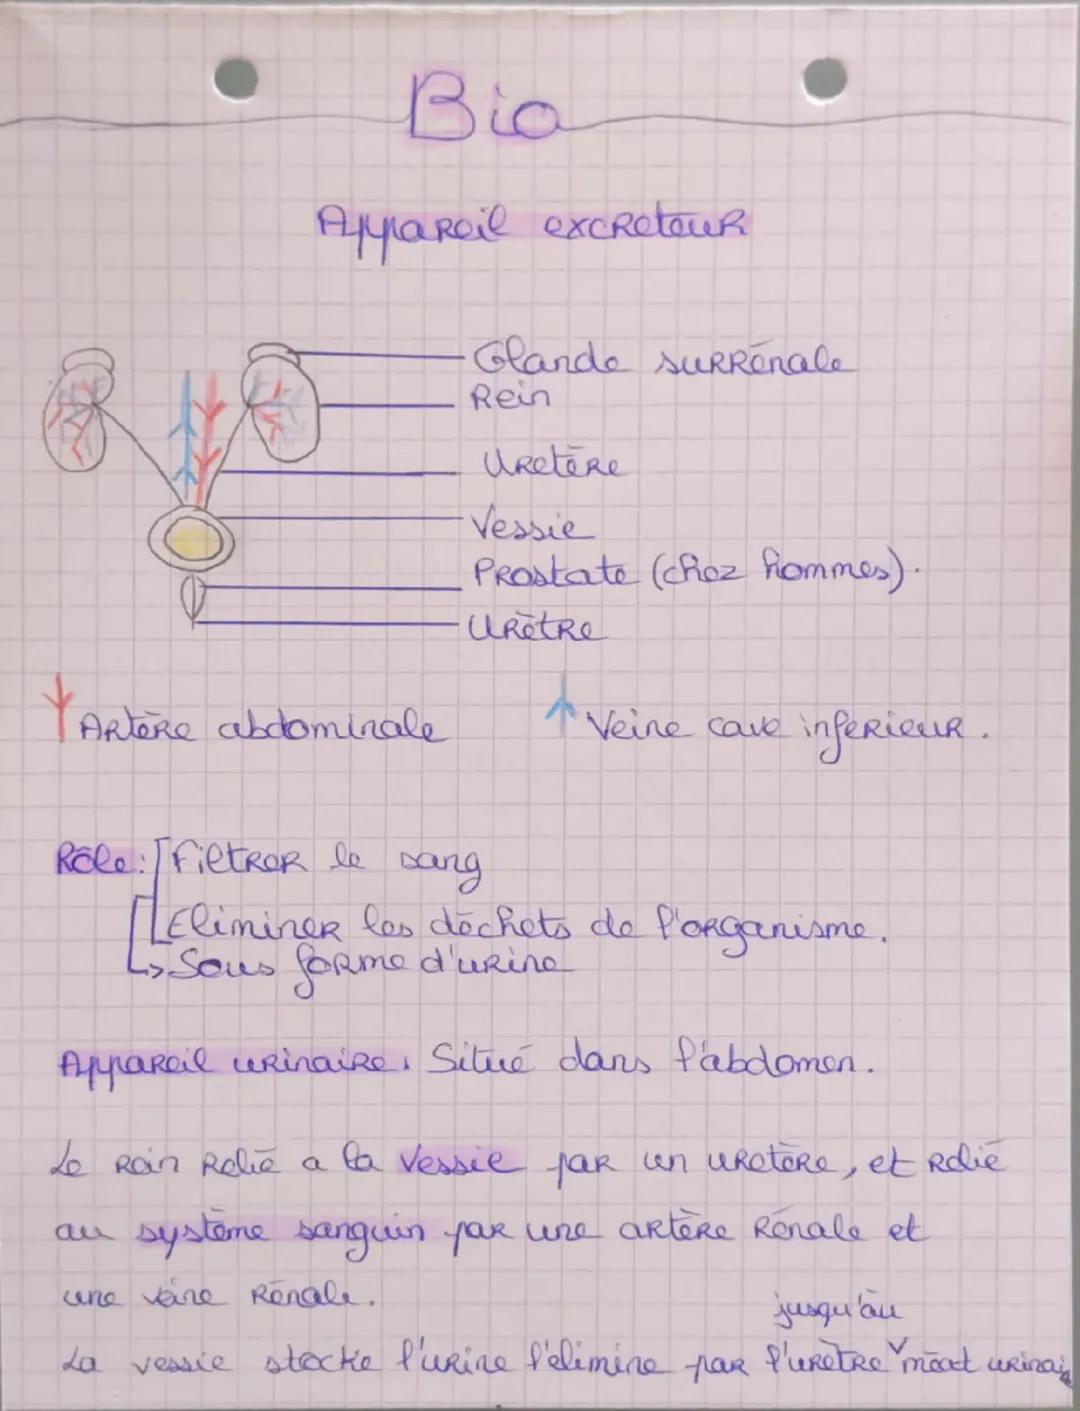 Bio
Appareil excreteur
Glande surrénale
Rein
Uretère
Vessie
Prostate (chez hommes).
Urètre
Artère abdominale
Veine cave inferieur.
Rôle: Filtrer le sang
Eliminer les déchets de l'organisme.
↳ Sous forme d'urine
Appareil urinaire. Situé dans l'abdomen.
Le rein relié a la vessie par un uretère, et relié
au système sanguin par une artère rénale et
une veine rénale.
jusqu'au
La vessie stocke l'urine l'elimine par l'urètre méat urinai